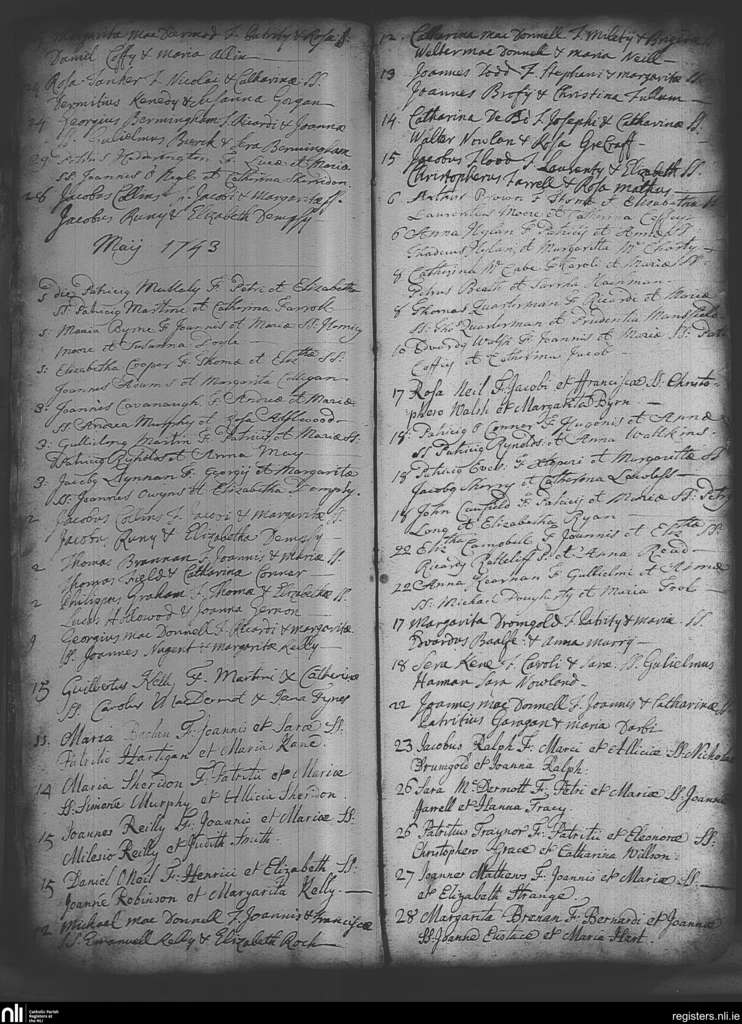 Margarita mac Dermod F. Patrity & Rosa SS.
Daniel Coffy & Maria Allin
Rosa Tanker F Nicolai & Catharinæ SS.
Dermitius Kenedy & Susanna Gorgan
24 Georgius Bermingham F Ricardi & Joannæ
SS. Gulielmus Burck & Sera Bermingham
Haddrington F. Lucæ et Mariæ
SS. Joannes O Neyl et Catherina
28 Jacobus Collins F. Jacobi & Margarita SS.
Jacobus Runy & Elizabeth Dempsy
Maij 1743
5 die Patricig Mukely F. Petri et Elizabetha
SS. Patricig Martine et Catherine Farrell
5: Maria Byrne F Joannis et Maria SS. Henrig
Moore et Susanna Doyle
5: Elizabetha Cooper F Thomæ et Elizthæ SS.
Joannes Adams et Margarita Colligan
3: Joannes Cavanaugh F. Andreæ et Mariæ
SS Andrea Murphy et Rosa Allewood
3: Guilielmg Martin F. Patricij et Mariæ SS.
Patricig Rynolds et Anna May
3: Jacobg Kynnan F. Georgij et Margarita
SS. Joannes Owyns et Elizabetha Dempsy.
2 Jacobus Colins F Jacobi & margaritæ SS
Jacobus Runy & Elizabetha Dempsy
2 Thomas Brannan F Joannis & mariæ SS
Thomas Field & Catharina Conner
2 Philippus Graham F Thomæ & Elizabethæ SS
Lucas Allewood & Joanna Vernon
9 Georgius mac Donnell F. Ricardi & margaritæ
SS. Joannes Nugent & margarita Reilly
15 Guilbertus Kelly F. Martini & Catherinæ
SS. Carolus MacDermot & Jana Tynes
11. Maria F. Joannis et Saræ SS.
Patritio Hartigan et Maria Kane.
14 Maria Sherdon F. Patritii et Mariæ
SS. Simone Murphy et Allicia Sherdon
15 Joannes Reilly F. Joannis et Mariæ SS.
Milesio Reilly et Judith Smith.
15 Daniel ONeil F. Henrici et Elizabeth SS.
Joanne Robinson et Margarita Kelly.
12 Michael mac Donnell F. Joannis & Franciscæ
SS. Emanuell Kelly & Elizabeth Roch
12. Catharina mac Donnell F Milety & Brigida SS
Walter mac Donnell & maria Neill
13 Joannes Todd F Stephani & margarita SS
Joannes Brofy & Christina Fullam
14. Catharina De Be F Josephi & Catharinæ SS.
Walter Nowlan & Rosa GreCraft
15 Jacobus Flood F Laurenty & Elizabeth SS.
Christopherus Farrell & Rosa Mathus
6 Arthur Brown F Thomæ et Elizabetha SS
Laurentius Moore et Catherina Coffey
6 Anna Nylan F Patricij et Annæ SS
Thadeus Nylan et Margaritta Mc
8 Catherina Mc Cabe F Karoli et Mariæ SS.
Petrus Beath et Sarrha
8 Thomas Quarterman F Ricardi et Mariæ
SS. Tho Quarterman et Prudentia Mansfield
10 Edwardg Wolfe F Joannis et Mariæ SS. Patri
Coffey et Catherina Jacob
17 Rosa Neil F. Jacobi et ffranciscæ SS. Christo-
phoro Walsh et Margarita Byrn
18: Patricig O Connor F Eugenij et Annæ
SS Patricig Rynolds et Anna Wallkins.
18 Patricig F. et Margarittæ SS
Jacobg Sherry et Catherina Lawless
19 John Canfield F Patricij et Mariæ SS. Petrg
Long et Elizabetha Ryan
22 Elizthæ Cambell F Joannis et Elizthæ SS.
Ricardg Rattcliff et Anna Read
22 Anna Kearnan F Guillielmi et Annæ
SS. Michael Daugherty et Maria Tool
17 Margarita Dromgold F Patrity & maria SS.
Edvardus Baalfe & Anna morry
18 Sera Kene F. Caroli & Saræ. SS. Gulielmus
Haman Sara Nowland.
22 Joannes mac Donnell F. Joannis & Catharinæ SS
Patritius Garagan & maria Darbi
23 Jacobus Ralph F. Marci et Alliciæ SS. Nicholao
Brumgold et Joanna Ralph.
26 Sara McDermott F. Petri et Mariæ SS. Joanne
Farrell et Hanna Tracy.
26 Patritius Traynor F. Patritii et Eleonoræ SS.
Christophero Grace et Catharina Willson.
27 Joannes Mathews F Joannis et Mariæ SS.
et Elizabeth Strange
28 Margarita Brenan F. Bernardi et Joannæ
SS. Joanne Eustace et Maria Hart.
nli
Catholic Parish
Registers at
the NLI
registers.nli.ie